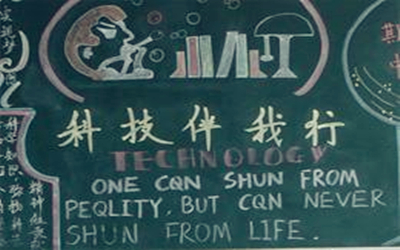 科技伴我行
TECHNOLOGY
ONE CQN SHUN FROM
PEQLITY, BUT CQN NEVER
SHUN FROM LIFE.